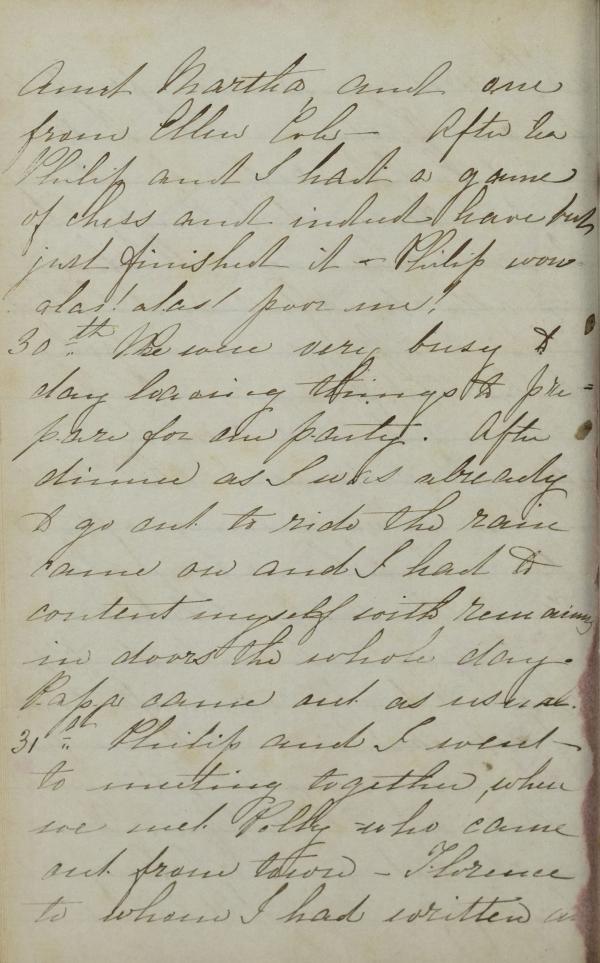 Aunt Martha, and one
from Ellen Cole – After tea
Philip and I had a game
of chess and indeed have but
just finished it – Philip won
alas! alas! poor me!
30th We were very busy to
day having things to pre=
pare for our party. After
dinner as I was already
to go out to ride the rain
came on and I had to
content myself with remaining
in doors the whole day.
Papa came out as usual.
31st Philip and I went
to meeting together, when
we met Polly who came
out from town – Florence
to whom I had written